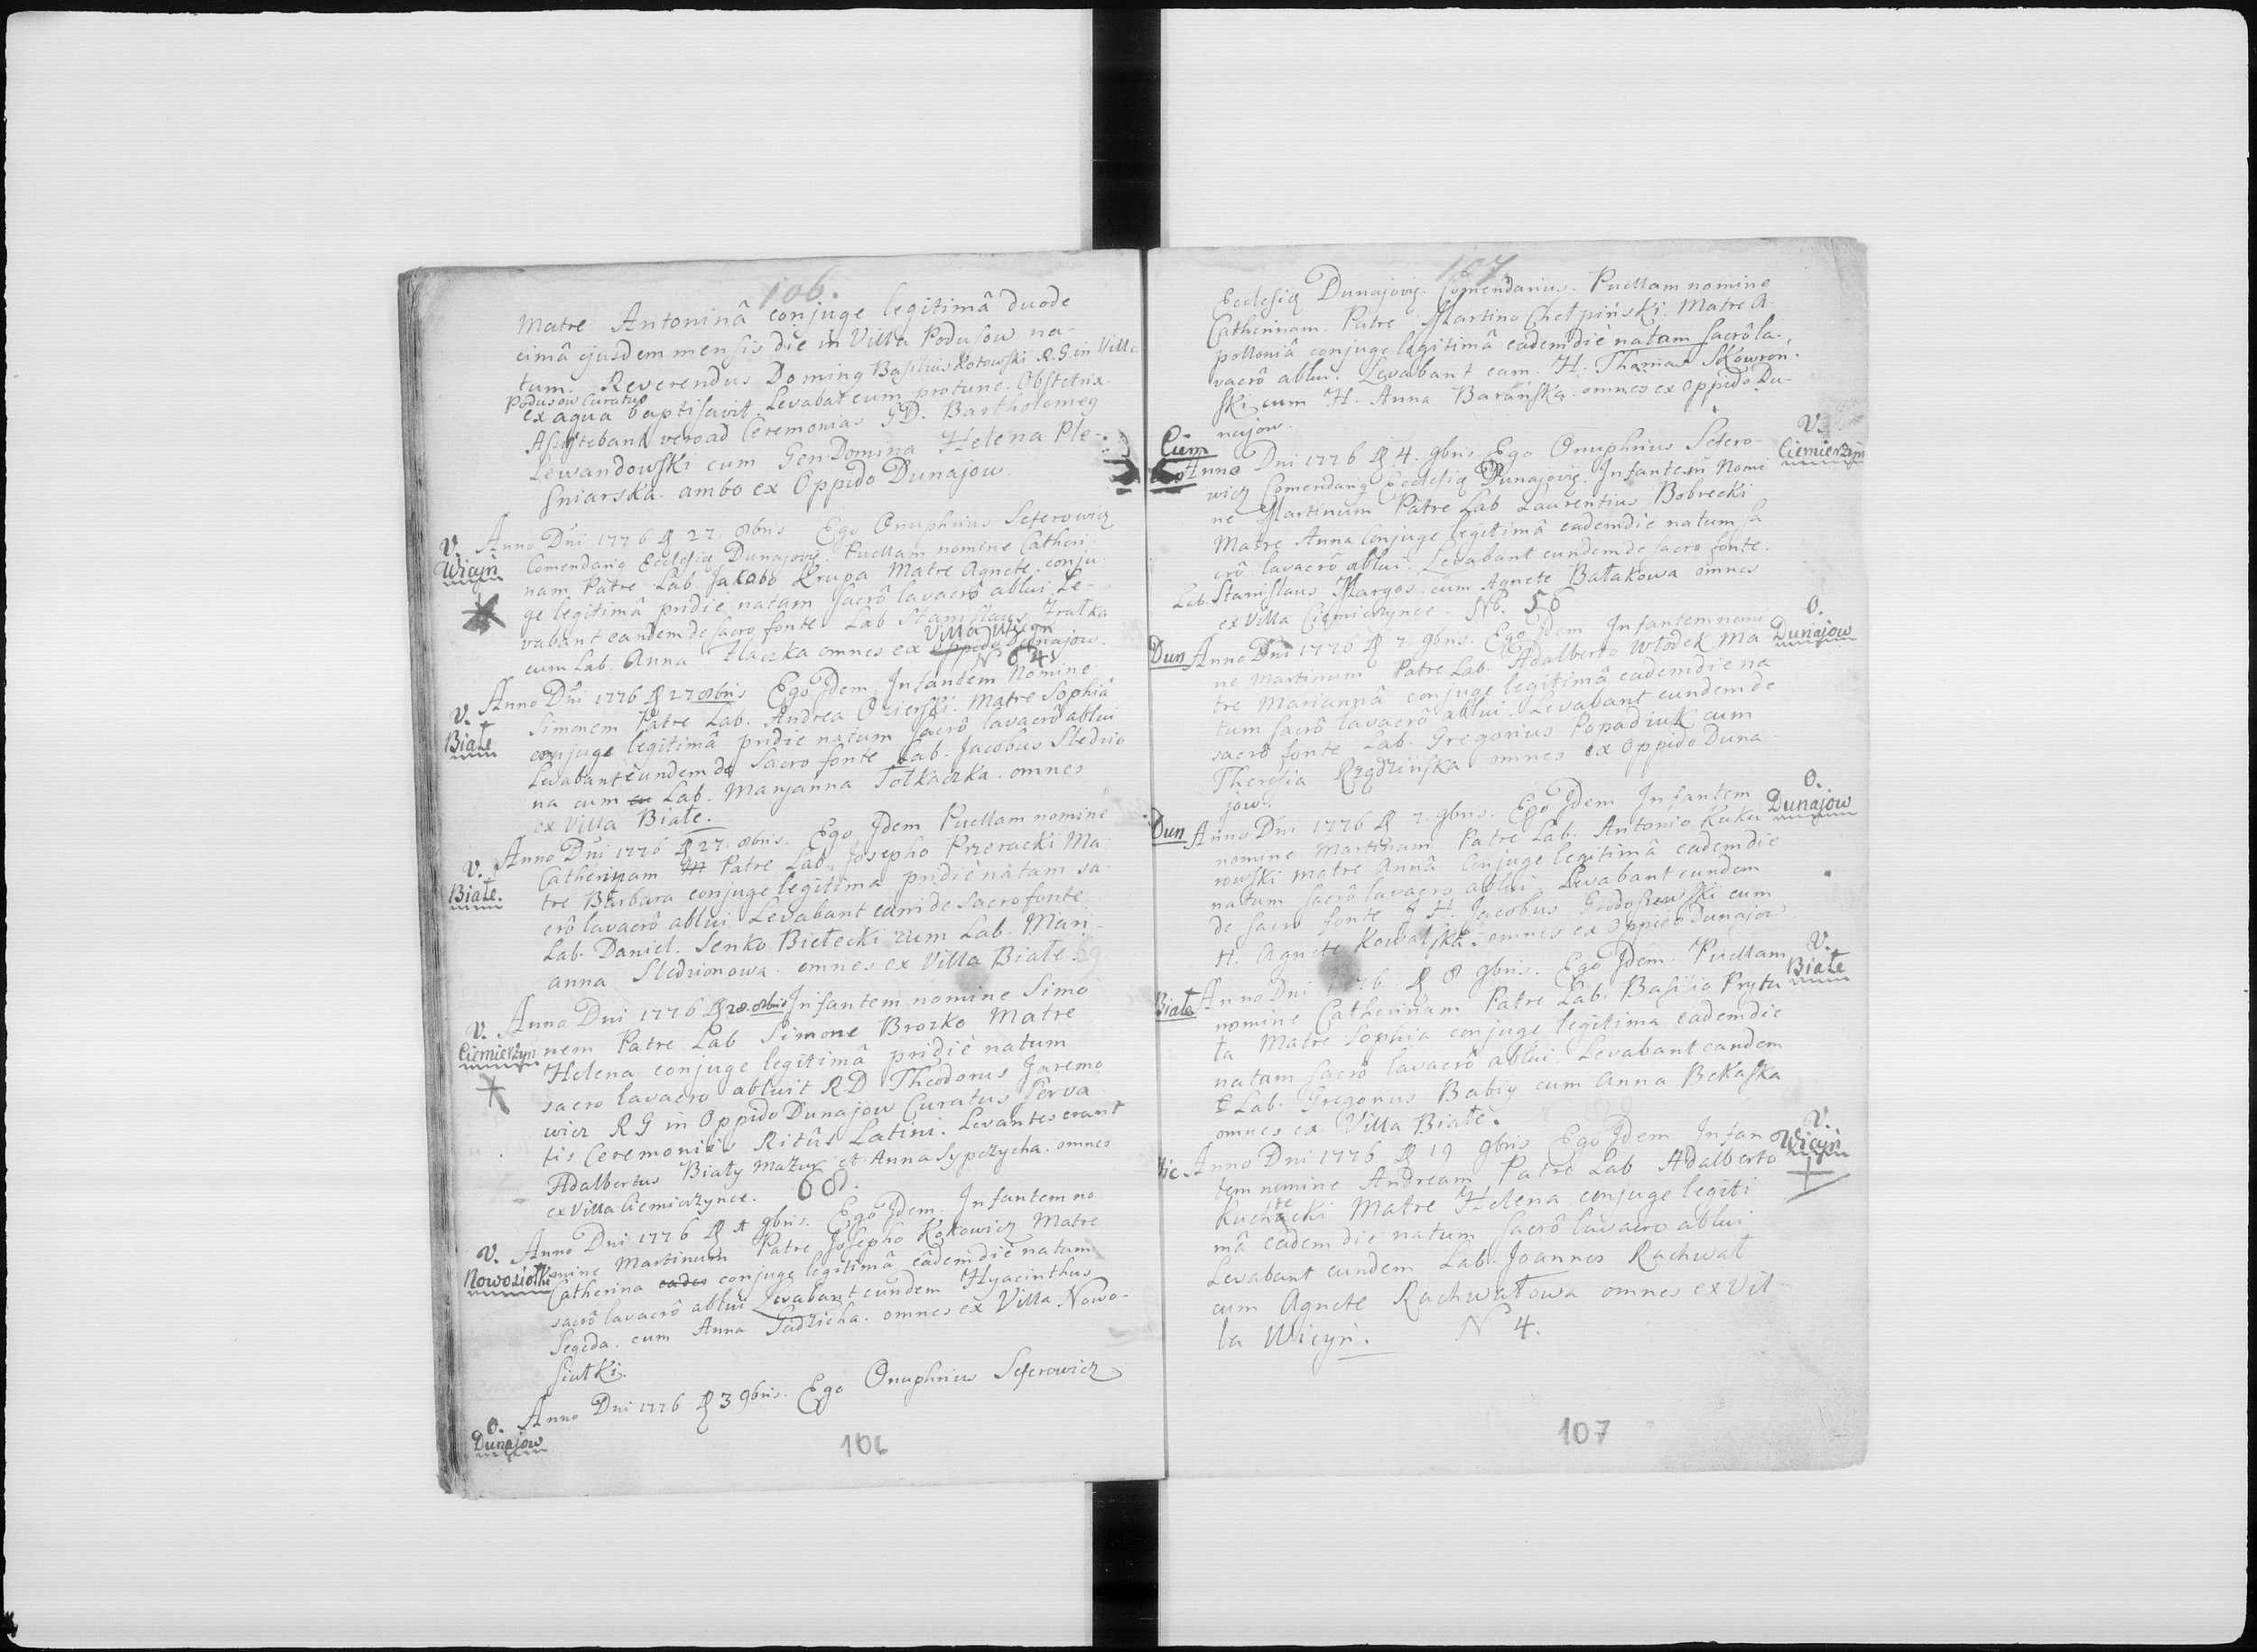 106.
Matre Antoninâ conjuge legitimâ duode
cimâ ejusdem mensis die in Villa Podusow na-
tum. Reverendus Doming Basilius Kotowski R.G. in Villa
Podusow Curatus
ex aqua baptisavit. Levabat eum protunc Obstetrix.
Assistebant vero ad Ceremonias GD. Bartholomeg
Lewandowski cum Gen. Domina Helena Ple-
sniarska. ambo ex Oppido Dunajow.
V.
Wicyń
Anno Dni 1776 D 27. 8bris Ego Onuphrius Seferowicz
Comendarg Ecclesiæ Dunajoviẽ. Puellam nomine Catheri-
nam Patre Lab. Jakobo Krupa Matre Agnete conju-
ge legitimâ pridiè natam sacrô lavacrô ablui Le-
vabant eandem de sacro fonte Lab Stanislaus Fratka
cum Lab. Anna Tkaczka omnes ex Oppido Dunajow.
Villa Wicyń
N 64.
V.
Białe
Anno Dni 1776 D 27 8bris Ego Idem Infantem Nomine
Simonem Patre Lab. Andrea Ozierski. Matre Sophiâ
conjuge legitimâ pridie natum sacrô lavacrô ablui
Levabant eundem de Sacro fonte Lab. Jacobus Sledzio
na cum cu Lab. Maryanna Tołkaczka. omnes
ex Villa Białe.
V.
Białe.
Anno Dni 1776 D 27. 8bris. Ego Idem Puellam nomine
Catherinam M Patre Lab. Josepho Przeracki Ma
tre Barbara conjuge legitima pridiè natam sa-
crô lavacrô ablui Levabant eam de Sacro fonte
Lab. Daniel. Senko Bielecki cum Lab. Mari-
anna Sledzionowa. omnes ex Villa Białe. 69
V.
Ciemierzyn
Anno Dni 1776 D 28. 8bris Infantem nomine Simo
nem Patre Lab Simone Brozko Matre
Helena conjuge legitimâ pridiè natum
sacro lavacro abluit R.D Theodorus Jaremo
wicz RG in Oppido Dunajow Curatus Serva
tis Ceremoniis Ritûs Latini. Levantes erant
Adalbertus Biały Mazur et Anna Sypczycha. omnes
ex Villa Ciemierzynce. 68.
V.
Nowosiołki
Anno Dni 1776 D 1 9bris. Ego Idem. Infantem no
mine Martinum Patre Josepho Kokowicz Matre
Catherina eades conjuge legitimâ eâdem die natum
sacrô lavacrô ablui Levabant eundem Hyacinthus
Segeda. cum Anna Sadzicha. omnes ex Villa Nowo-
siułki.
O.
Dunajow
Anno Dni 1776 D 3 9bris. Ego Onuphrius Seferowicz
106
107.
Ecclesiæ Dunajoviẽ. Comendarius. Puellam nomine
Catherinam. Patre Martino Chełpiński. Matre A-
polloniâ conjuge legitimâ eadem diè natam sacrô la-
vacrô ablui. Levabant eam. H. Thomas Skowron-
ski cum H. Anna Barańska. omnes ex Oppido Du-
najow.
Ciem
V.
Ciemierzyn
Anno Dni 1776 D 4. 9bris. Ego Onuphrius Sefero-
wicz Comendarg Ecclesiæ Dunajoviẽ. Infantem Nomi
ne Martinum Patre Lab Laurentius Bobrecki
Matre Anna Conjuge legitimâ eadem die natum sa
crô lavacrô ablui. Levabant eundem de sacro fonte.
Lab. Stanislaus Margos. cum Agnete Bałakowa omnes
ex Villa Ciemierzynce. No. 56
Dun
O.
Dunajow
Anno Dni 1776 D 7. 9bris. Ego Idem Infantem nomi
ne Martinum Patre Lab. Adalberto Włodek Ma
tre Mariannâ conjuge legitimâ eadem die na
tum sacrô lavacrô ablui. Levabant eundem de
sacro fonte Lab. Gregorius Popadiuk cum
Theresia Rządzińska omnes ex Oppido Duna-
jow.
Dun
O.
Dunajow
Anno Dni 1776 D 7. 9bris. Ego Idem Infantem
nomine Martinum Patre Lab. Antonio Kuku
rowski matre Annâ Conjuge legitimâ eadem die
natum sacrô lavacro ablui Levabant eundem
de sacro fonte H. Jacobus Grodosiewski cum
H. Agnete Kowalska. omnes ex Oppido Dunajow
Białe
V.
Białe
Anno Dni 1776. D 8 9bris. Ego Idem. Puellam
nomine Catherinam Patre Lab. Basilio Pryta
ta Matre Sophia conjuge legitima eadem die
natam sacrô lavacrô ablui. Levabant eandem
Lab. Gregorius Babiy cum Anna Bekaska
omnes ex Villa Białe.
Wic.
V.
Wicyń
Anno Dni 1776 D 19 9bris Ego Idem Infan
tem nomine Andream Patre Lab Adalberto
Kuchtecki Matre Helena conjuge legiti
mâ eâdem die natum sacrô lavacro ablui
Levabant eundem Lab. Joannes Rachwał
cum Agnete Rachwałowa omnes ex Vil-
la Wicyń. N 4.
107